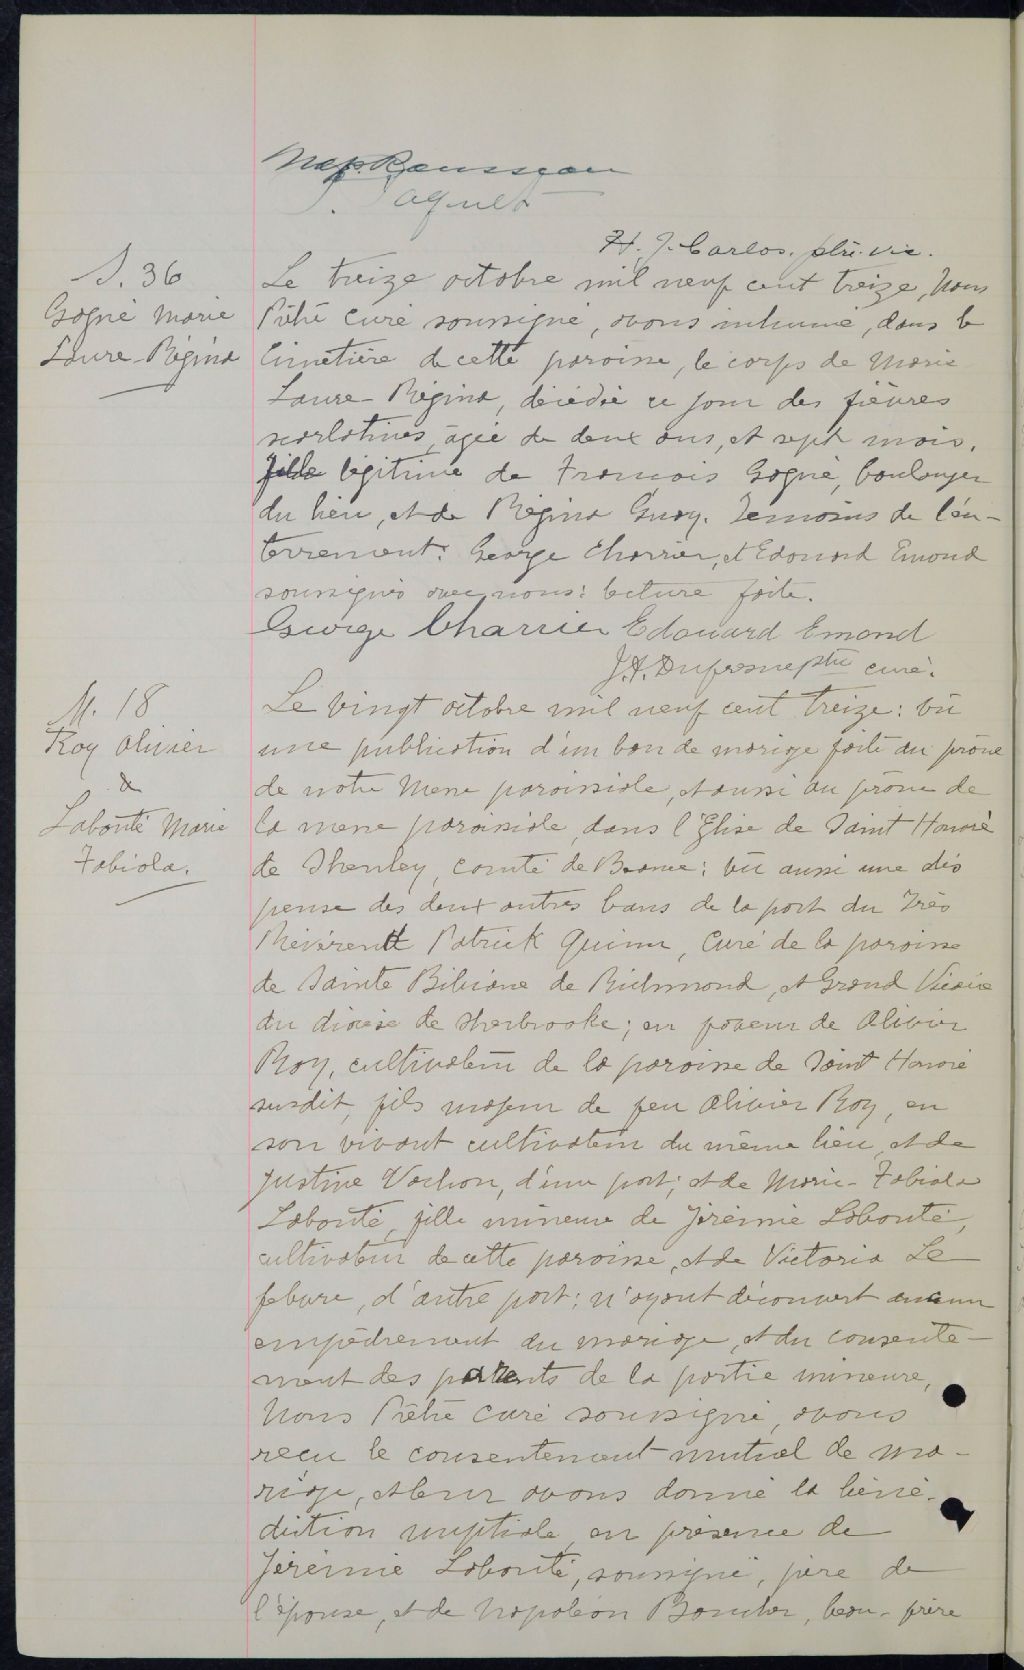 Nap. Rousseau
J. Paquet
H. J. Carlos. ptre. vic.
S. 36
Gagné Marie
Laure-Régina
Le treize octobre mil neuf cent treize, Nous
Prêtre Curé soussigné, avons inhumé, dans le
Cimetière de cette paroisse, le corps de Marie
Laure-Régina, décédée ce jour des fièvres
scarlatines, âgée de deux ans, et sept mois.
fille légitime de François Gagné, boulanger
du lieu, et de Régina Guay. Témoins de l'en-
terrement: George Charrier, et Edouard Emond
soussignés avec nous: lecture faite.
George Charrier Edouard Emond
J.A. Dufresne ptre curé.
M. 18
Roy Olivier
&
Labonté Marie
Fabiola.
Le vingt octobre mil neuf cent treize: vu
une publication d'un ban de mariage faite au prône
de notre Messe paroissiale, et aussi au prône de
la messe paroissiale, dans l'Eglise de Saint Honoré
de Shenley, comté de Beauce: vu aussi une dis
pense des deux autres bans de la part du Très
Révérend Patrick Quinn, Curé de la paroisse
de Sainte Bibiane de Richmond, et Grand Vicaire
du diocèse de Sherbrooke; en faveur de Olivier
Roy, cultivateur de la paroisse de Saint Honoré
susdit, fils majeur de feu Olivier Roy, en
son vivant cultivateur du même lieu, et de
Justine Vachon, d'une part; et de Marie-Fabiola
Labonté, fille mineure de Jérémie Labonté,
cultivateur de cette paroisse, et de Victoria Le
febvre, d'autre part: n'ayant découvert aucun
empêchement au mariage, et du consente-
ment des parents de la partie mineure,
Nous Prêtre Curé soussigné, avons
reçu le consentement mutuel de ma-
riage, et leur avons donné la béné-
diction nuptiale en présence de
Jérémie Labonté, soussigné, père de
l'épouse, et de Napoléon Boucher, beau-frère